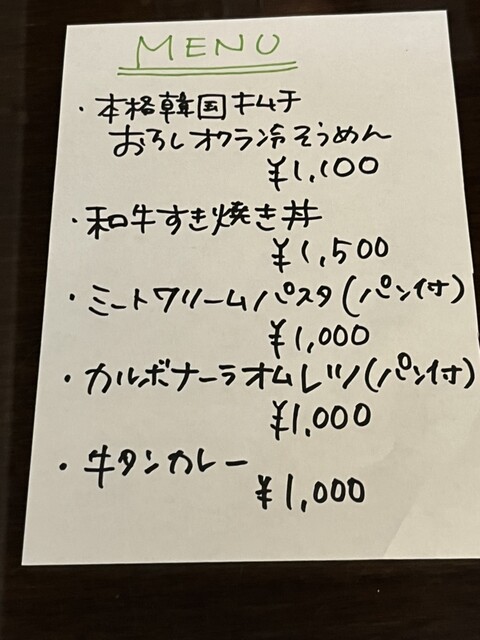 MENU
・本格韓国キムチ
おろしオクラ冷そうめん
¥1,100
・和牛すき焼き丼
¥1,500
・ミートクリームパスタ(パン付)
¥1,000
・カルボナーラオムレツ(パン付)
¥1,000
・牛タンカレー
¥1,000